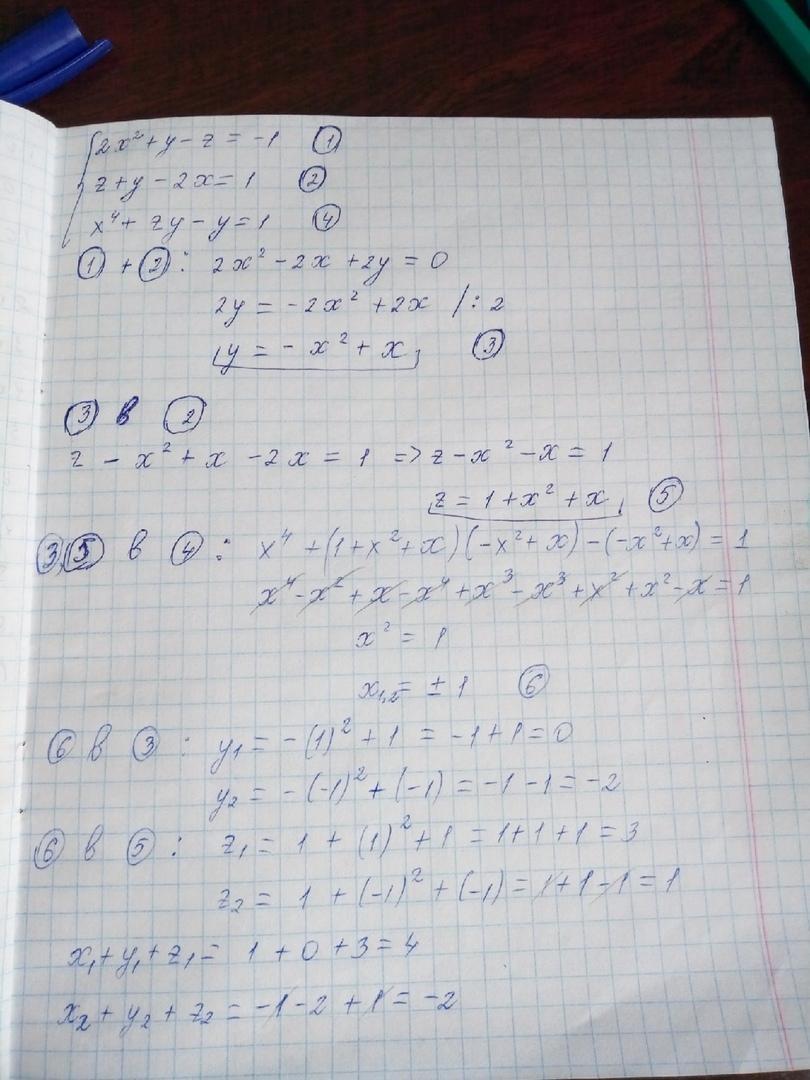 2x² + y - z = -1 ①
z + y - 2x = 1 ②
x⁴ + zy - y = 1 ④
① + ②: 2x² - 2x + 2y = 0
2y = -2x² + 2x /: 2
y = -x² + x ③
③ в ②
z - x² + x - 2x = 1 => z - x² - x = 1
z = 1 + x² + x ⑤
③,⑤ в ④: x⁴ + (1 + x² + x)(-x² + x) - (-x² + x) = 1
x⁴ - x² + x - x⁴ + x³ - x³ + x² + x² - x = 1
x² = 1
x₁,₂ = ± 1 ⑥
⑥ в ③: y₁ = -(1)² + 1 = -1 + 1 = 0
y₂ = -(-1)² + (-1) = -1 - 1 = -2
⑥ в ⑤: z₁ = 1 + (1)² + 1 = 1 + 1 + 1 = 3
z₂ = 1 + (-1)² + (-1) = 1 + 1 - 1 = 1
x₁ + y₁ + z₁ = 1 + 0 + 3 = 4
x₂ + y₂ + z₂ = -1 - 2 + 1 = -2